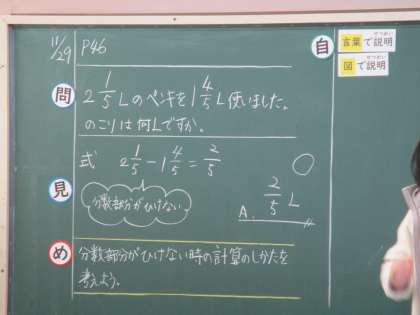 11/29 P46
問 2 1/5 Lのペンキを1 4/5 L使いました。
のこりは何Lですか。
式 2 1/5 - 1 4/5 = 2/5
見 分数部分がひけない
A. 2/5 L
め 分数部分がひけない時の計算のしかたを
考えよう。
自
言葉で説明
せつめい
図で説明
せつめい